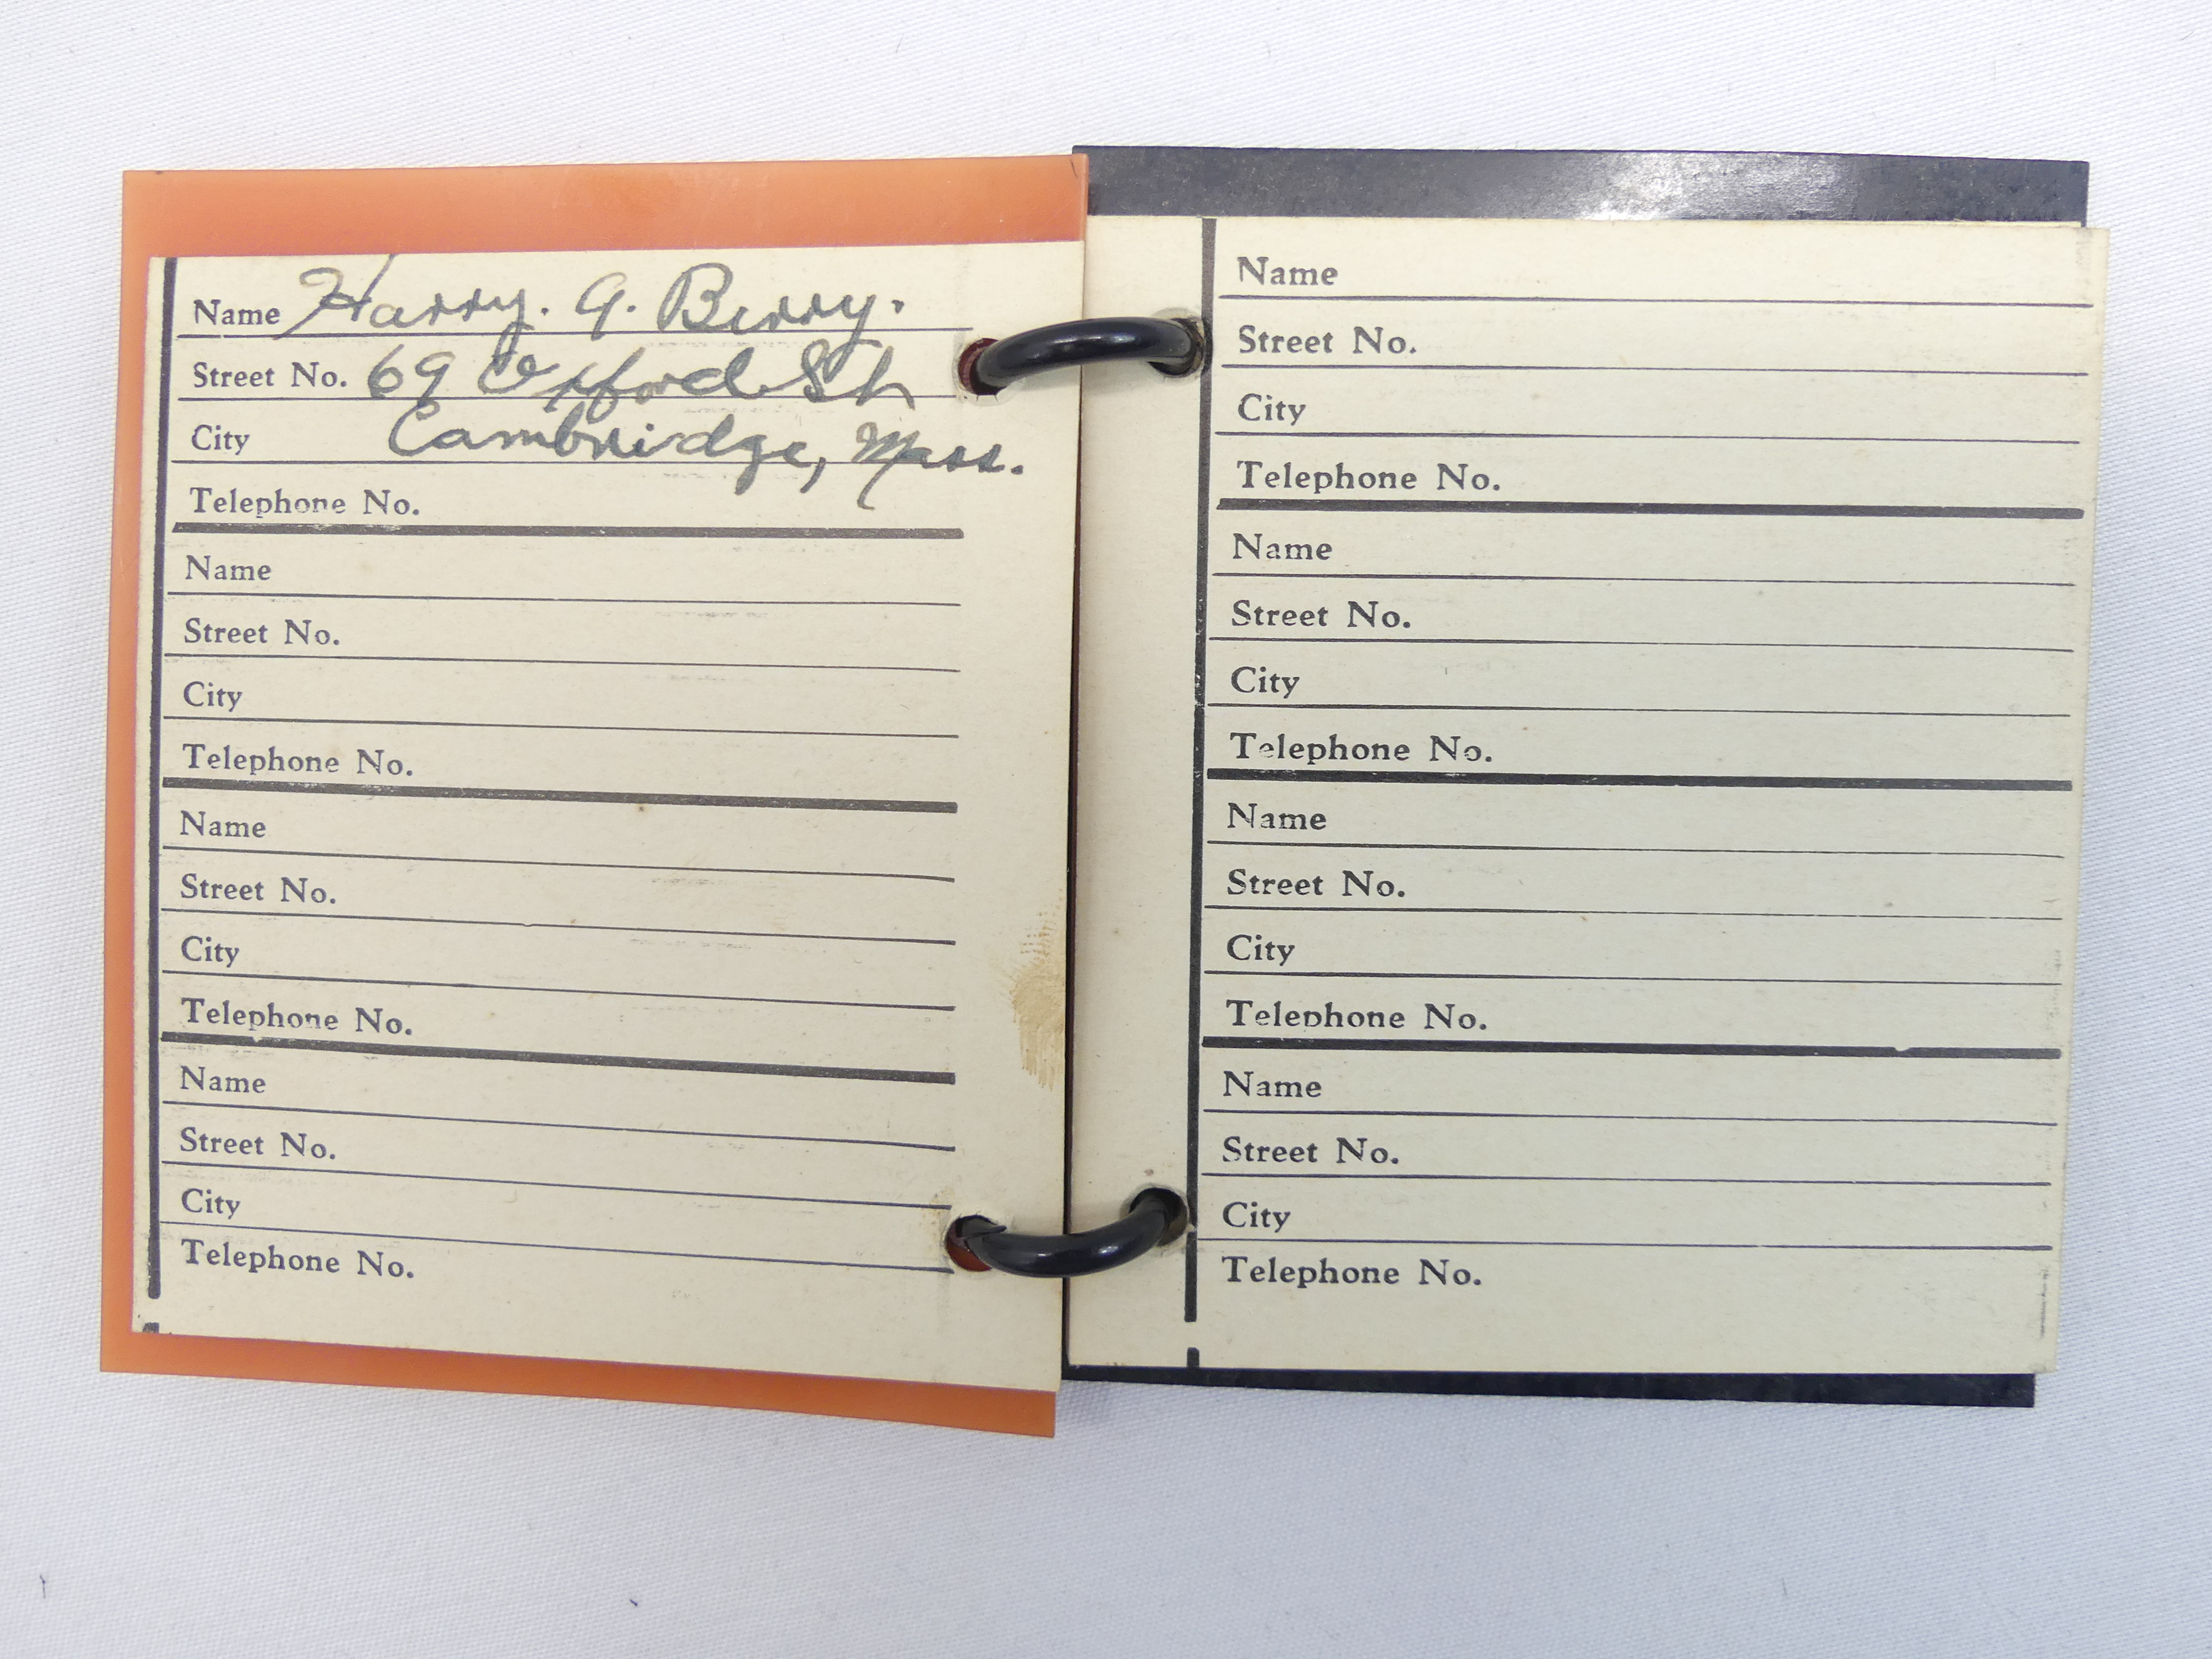 Name Harry. A. Berry.
Street No. 69 Oxford St
City Cambridge, Mass.
Telephone No.
Name
Street No.
City
Telephone No.
Name
Street No.
City
Telephone No.
Name
Street No.
City
Telephone No.
Name
Street No.
City
Telephone No.
Name
Street No.
City
Telephone No.
Name
Street No.
City
Telephone No.
Name
Street No.
City
Telephone No.